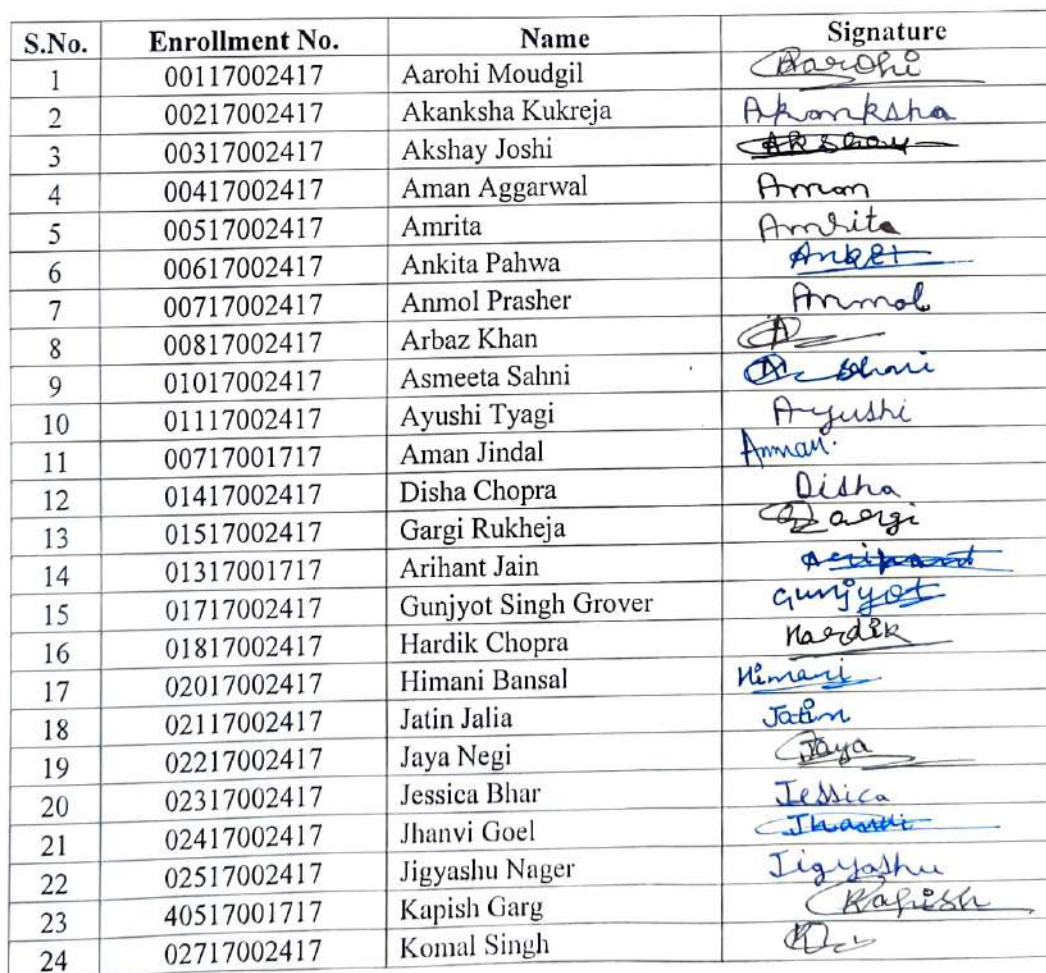 S.No. Enrollment No. Name Signature
1 00117002417 Aarohi Moudgil Aarohi
2 00217002417 Akanksha Kukreja Akanksha
3 00317002417 Akshay Joshi Akshay
4 00417002417 Aman Aggarwal Aman
5 00517002417 Amrita Amrita
6 00617002417 Ankita Pahwa
7 00717002417 Anmol Prasher Anmol
8 00817002417 Arbaz Khan A
9 01017002417 Asmeeta Sahni A
10 01117002417 Ayushi Tyagi Ayushi
11 00717001717 Aman Jindal
12 01417002417 Disha Chopra Disha
13 01517002417 Gargi Rukheja Gargi
14 01317001717 Arihant Jain Arihant
15 01717002417 Gunjyot Singh Grover Gunjyot
16 01817002417 Hardik Chopra Hardik
17 02017002417 Himani Bansal Himani
18 02117002417 Jatin Jalia Jatin
19 02217002417 Jaya Negi Jaya
20 02317002417 Jessica Bhar Jessica
21 02417002417 Jhanvi Goel Jhanvi
22 02517002417 Jigyashu Nager Jigyashu
23 40517001717 Kapish Garg Kapish
24 02717002417 Komal Singh K